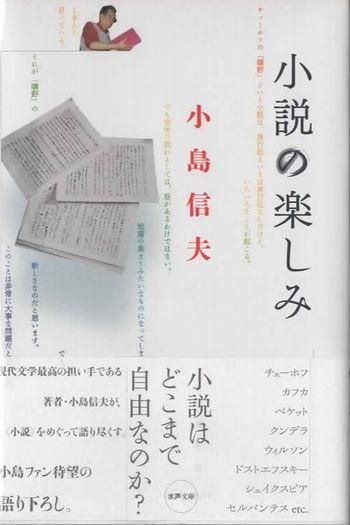 小説の楽しみ
小島信夫
チェーホフの「曠野」という小説は、旅行記といえば旅行記なんだけど、
いろいろなことが起こる。
でも全体の流れとしては、筋があるわけではない。
短篇の集まりみたいなものになってしま
新しさなのだと思います。
このことは非常に大事な問題だと
それが「曠野」の
と本人も
思っている。
で
チェーホフ
カフカ
ベケット
クンデラ
ウィルソン
ドストエフスキー
シェイクスピア
セルバンテス etc.
小説は
どこまで
自由なのか?
水声文庫
現代文学最高の担い手である
著者・小島信夫が、
〈小説〉をめぐって語り尽くす。
小島ファン待望の
語り下ろし。